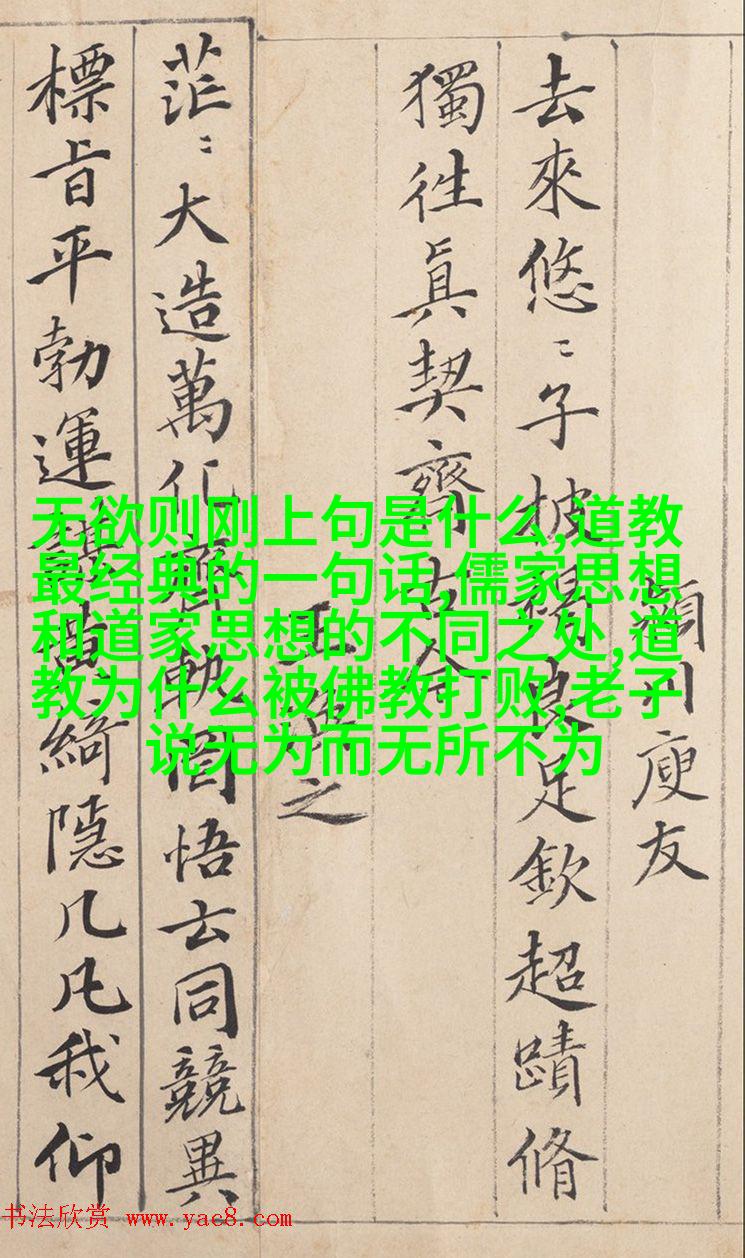 川庾友
去來悠〻子披褐良足欽超蹟脩
獨往真契齊古今
王之
茫〻大造萬化齊軌罔悟玄同競異
標旨平勃運綺隱几凡我仰
无欲则刚上句是什么,道教
最经典的一句话,儒家思想
和道家思想的不同之处,道
教为什么被佛教打败,老子
说无为而无所不为
书法欣赏 www.yac8.com